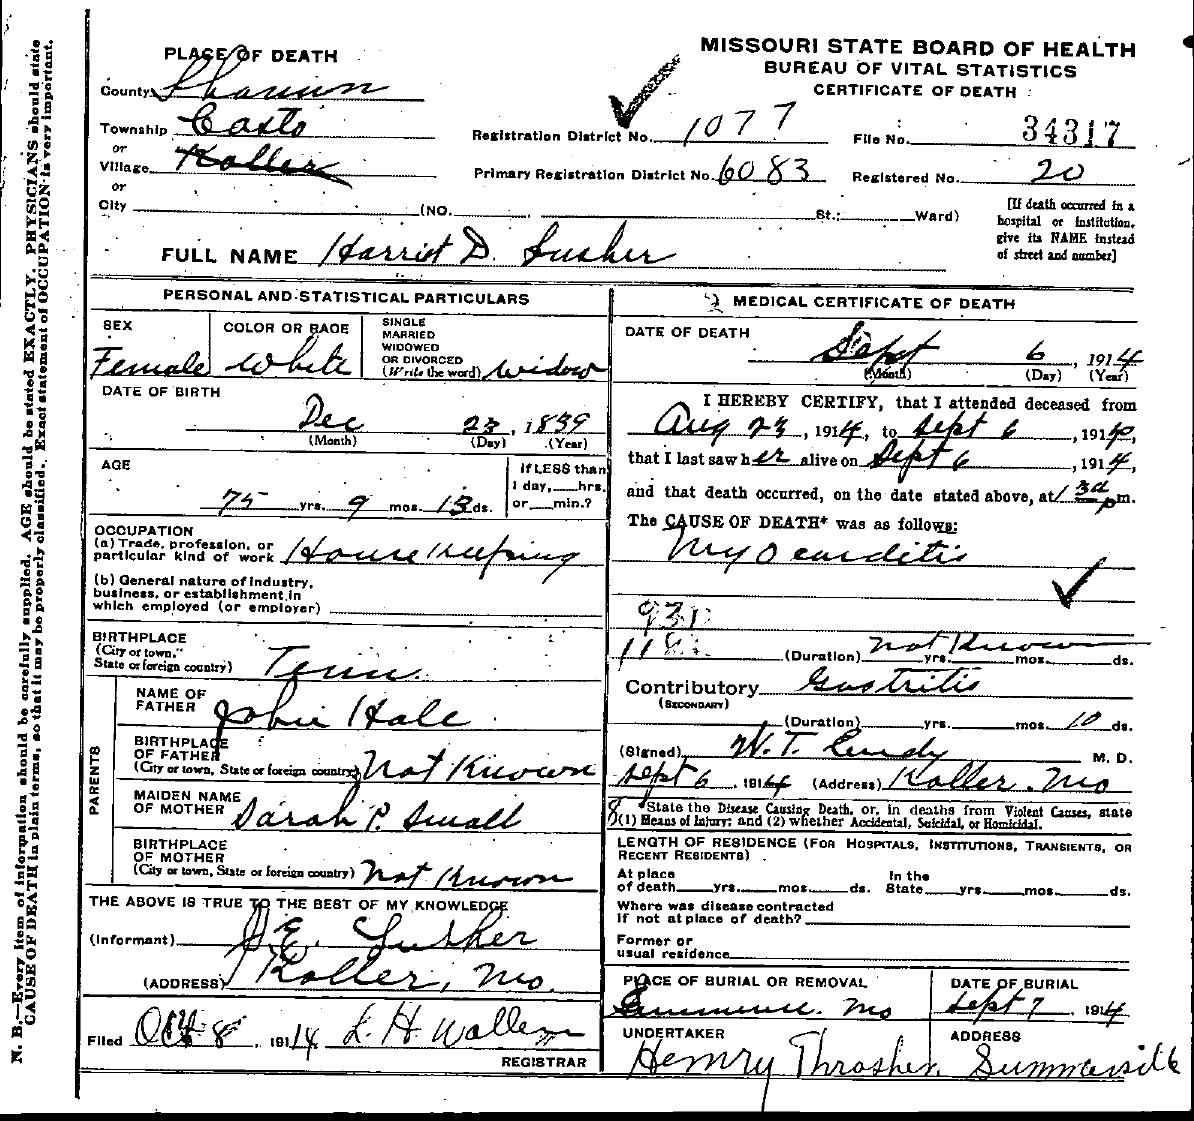 MISSOURI STATE BOARD OF HEALTH
BUREAU OF VITAL STATISTICS
CERTIFICATE OF DEATH
PLACE OF DEATH
County Shannon
Township Casto
or
Village Koller
or
City (NO. St.; Ward)
Registration District No. 1077
File No. 34317
Primary Registration District No. 6083
Registered No. 20
[If death occurred in a
hospital or institution,
give its NAME instead
of street and number]
FULL NAME Harriet D. Lusher
PERSONAL AND STATISTICAL PARTICULARS
SEX
Female
COLOR OR RACE
White
SINGLE
MARRIED
WIDOWED
OR DIVORCED
(Write the word) Widow
DATE OF BIRTH
Dec 23, 1839
(Month) (Day) (Year)
AGE
75 yrs. 9 mos. 13 ds.
If LESS than
1 day, hrs.
or min.?
OCCUPATION
(a) Trade, profession, or
particular kind of work House Keeping
(b) General nature of industry,
business, or establishment in
which employed (or employer)
BIRTHPLACE
(City or town,
State or foreign country) Tenn.
PARENTS
NAME OF
FATHER John Hale
BIRTHPLACE
OF FATHER
(City or town, State or foreign country) Not Known
MAIDEN NAME
OF MOTHER Sarah P. Small
BIRTHPLACE
OF MOTHER
(City or town, State or foreign country) Not Known
THE ABOVE IS TRUE TO THE BEST OF MY KNOWLEDGE
(Informant) Lusher
(ADDRESS) Koller, Mo.
Filed Oct 8, 1914 L. H. Wallen
REGISTRAR
MEDICAL CERTIFICATE OF DEATH
DATE OF DEATH
Sept 6, 1914
(Month) (Day) (Year)
I HEREBY CERTIFY, that I attended deceased from
Aug 23, 1914, to Sept 6, 1914,
that I last saw her alive on Sept 6, 1914,
and that death occurred, on the date stated above, at 1 30 pm.
The CAUSE OF DEATH* was as follows:
Myocarditis
93D
118
(Duration) not Known yrs. mos. ds.
Contributory Gastritis
(SECONDARY)
(Duration) yrs. mos. 10 ds.
(Signed) W. T. Eudy M. D.
Sept 6, 1914 (Address) Koller, Mo
*State the Disease Causing Death, or, in deaths from Violent Causes, state
(1) Means of Injury; and (2) whether Accidental, Suicidal, or Homicidal.
LENGTH OF RESIDENCE (FOR HOSPITALS, INSTITUTIONS, TRANSIENTS, OR
RECENT RESIDENTS)
At place
of death yrs. mos. ds.
In the
State yrs. mos. ds.
Where was disease contracted
if not at place of death?
Former or
usual residence
PLACE OF BURIAL OR REMOVAL
Mo
DATE OF BURIAL
Sept 7, 1914
UNDERTAKER
Hemry Thrasher
ADDRESS
Summersville
N. B.—Every item of information should be carefully supplied. AGE should be stated EXACTLY. PHYSICIANS should state
CAUSE OF DEATH in plain terms, so that it may be properly classified. Exact statement of OCCUPATION is very important.